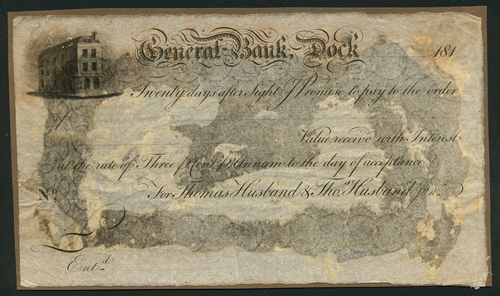 General-Bank, Dock 181
Twenty days after Sight I Promise to pay to the order
of
Value receivd with Interest
at the rate of Three P Cent P Annum to the day of acceptance
No For Thomas Husband & Thos. Husband Junr.
£
Entd.